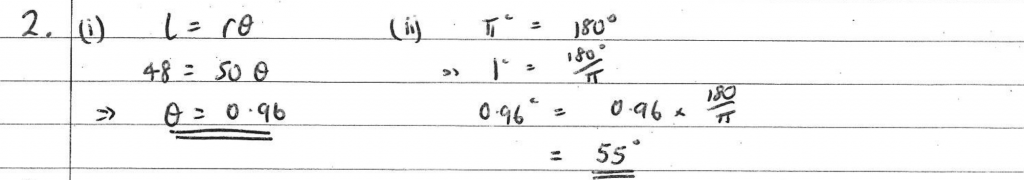 2. (i) l = rθ
48 = 50 θ
=> θ = 0.96
(ii) πᶜ = 180°
=> 1ᶜ = 180°/π
0.96ᶜ = 0.96 × 180/π
= 55°